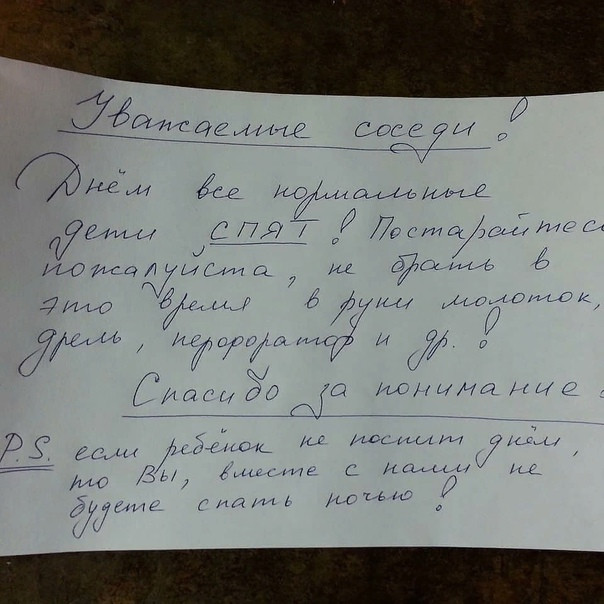 Уважаемые соседи!
Днём все нормальные
дети СПЯТ! Постарайтесь
пожалуйста, не брать в
это время в руки молоток,
дрель, перфоратор и др.!
Спасибо за понимание
P.S. если ребёнок не поспит днём,
то Вы, вместе с нами не
будете спать ночью!